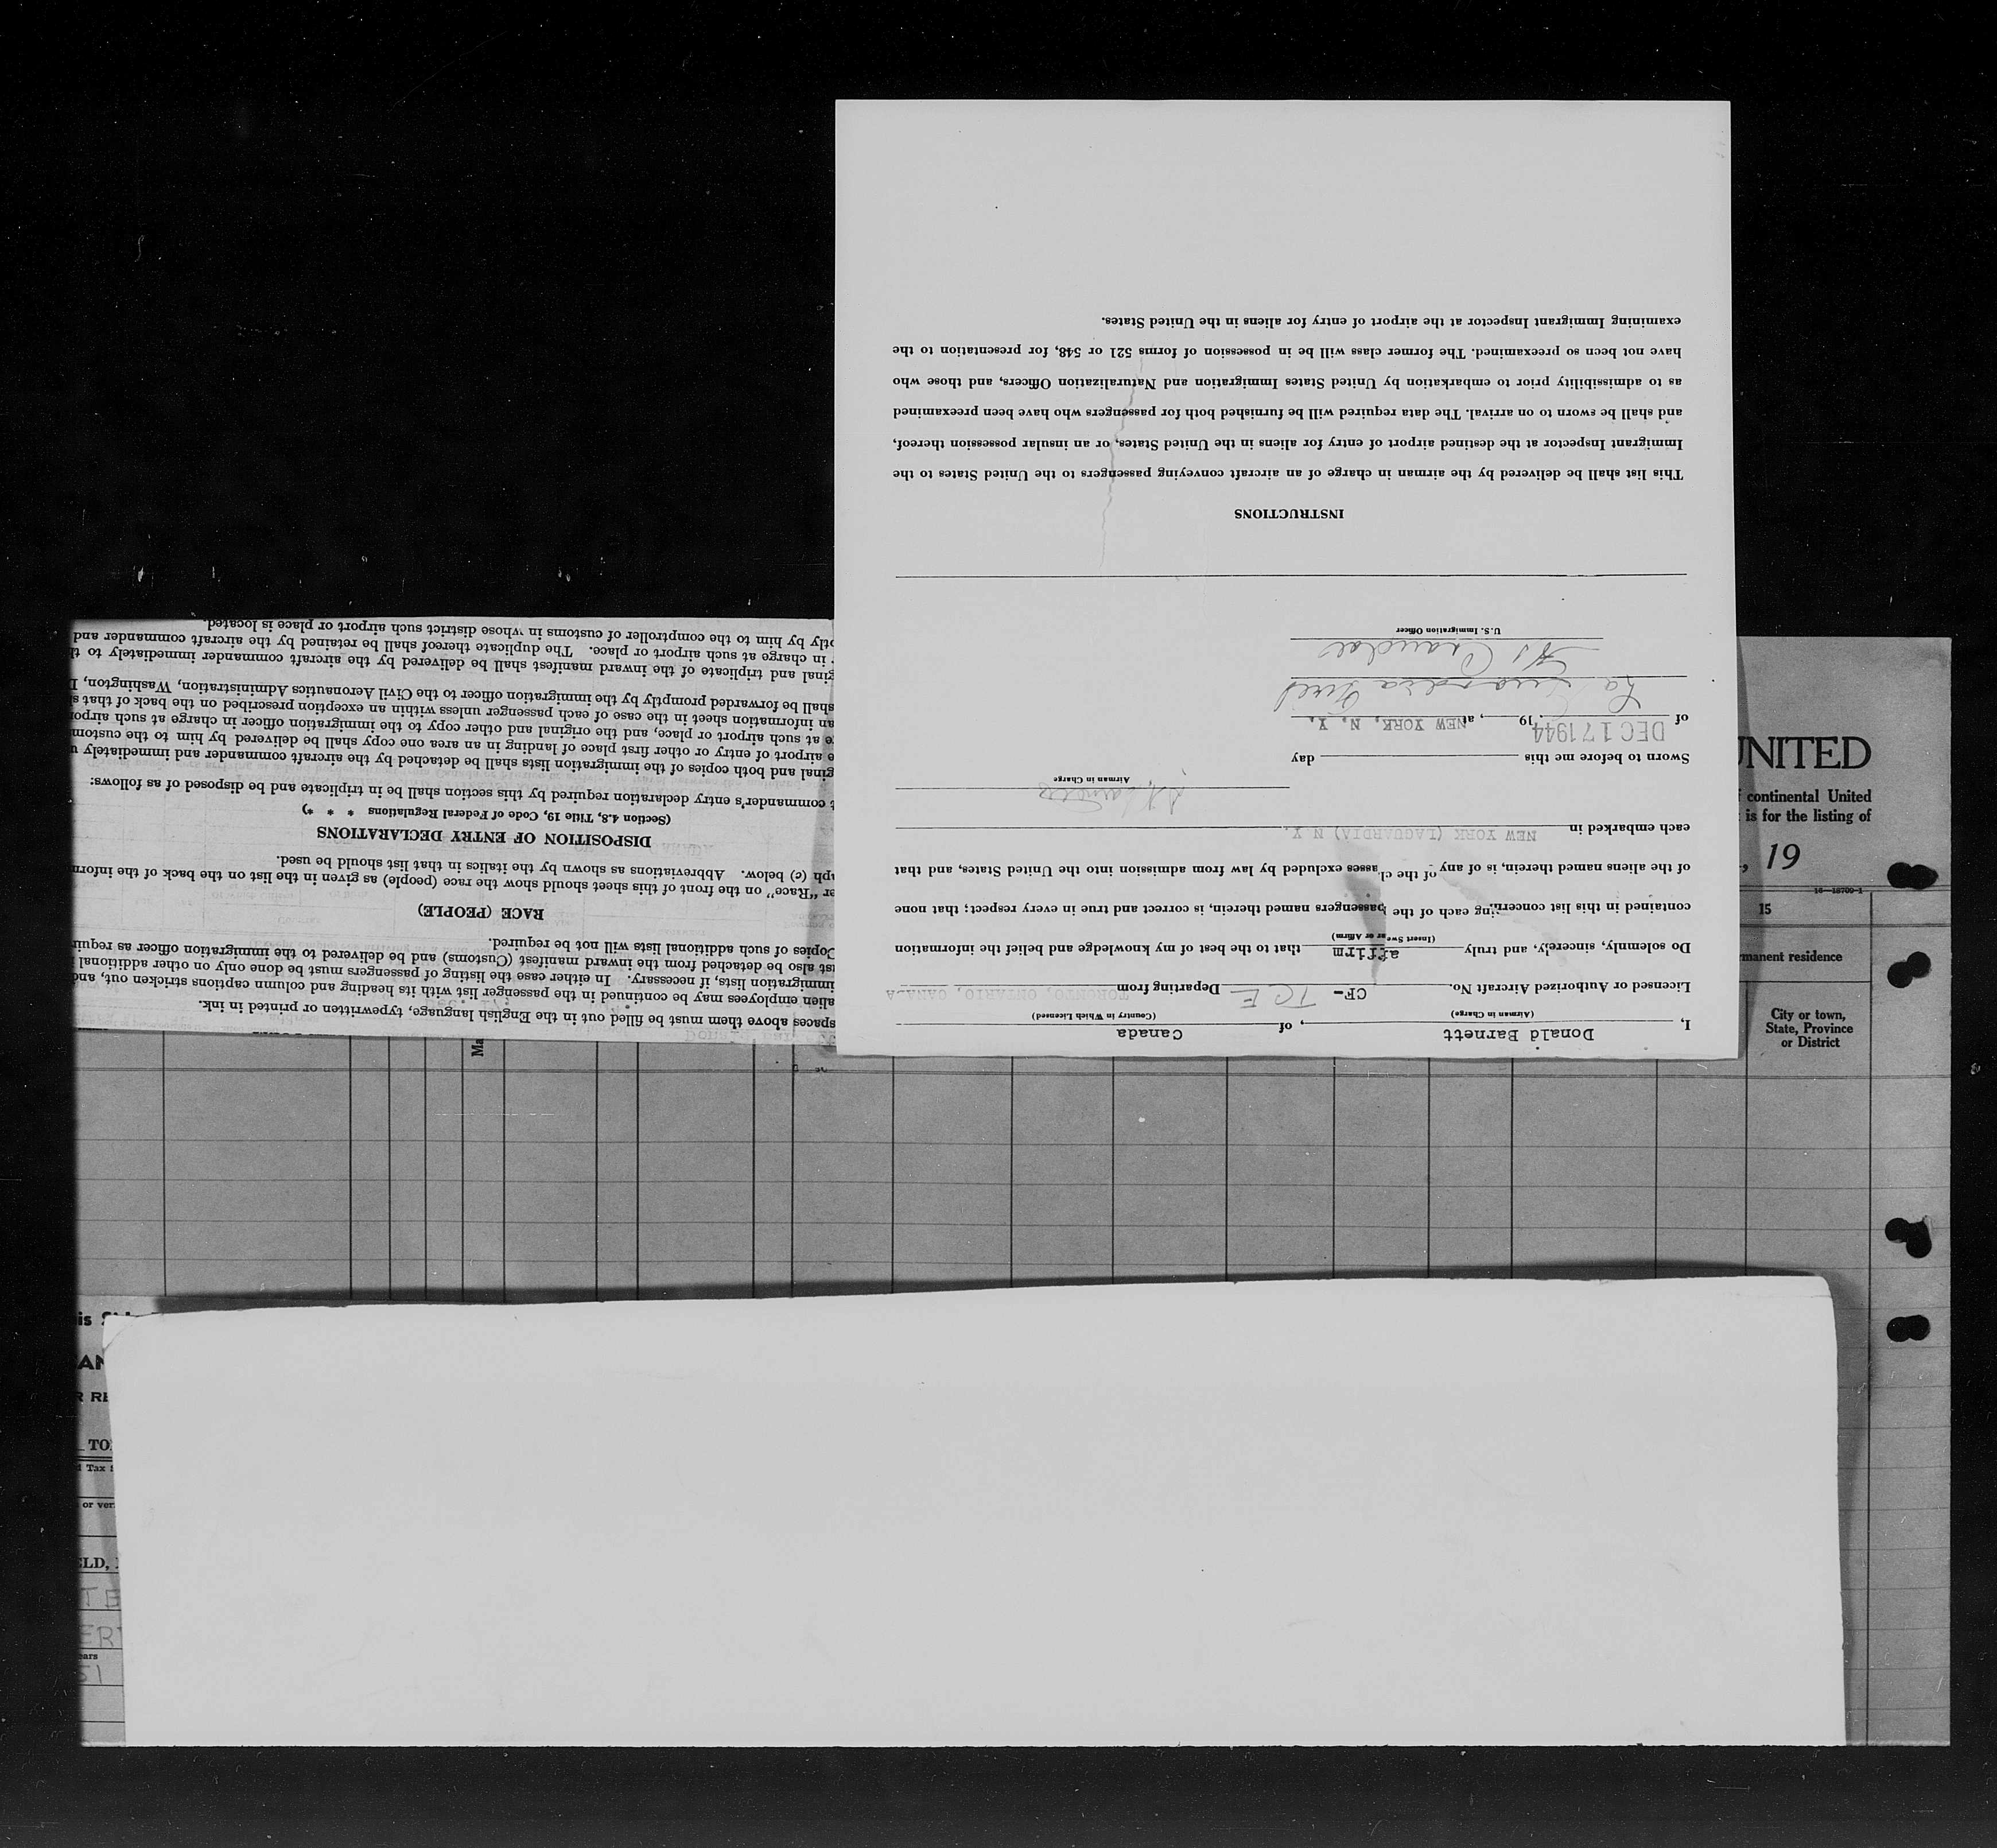 I, Donald Barnett, of Canada
(Airman in Charge) (Country in Which Licensed)
Licensed or Authorized Aircraft No. CF- TCE Departing from TORONTO, ONTARIO, CANADA
Do solemnly, sincerely, and truly affirm that to the best of my knowledge and belief the information
(Insert Swear or Affirm)
contained in this list concerning each of the passengers named therein, is correct and true in every respect; that none
of the aliens named therein, is of any of the classes excluded by law from admission into the United States, and that
each embarked in NEW YORK (LAGUARDIA) N.Y.
Airman in Charge
Sworn to before me this day
of DEC 17 1944, 19, at NEW YORK, N. Y.
La Guardia Field
U. S. Immigration Officer
INSTRUCTIONS
This list shall be delivered by the airman in charge of an aircraft conveying passengers to the United States to the
Immigrant Inspector at the destined airport of entry for aliens in the United States, or an insular possession thereof,
and shall be sworn to on arrival. The data required will be furnished both for passengers who have been preexamined
as to admissibility prior to embarkation by United States Immigration and Naturalization Officers, and those who
have not been so preexamined. The former class will be in possession of forms 521 or 548, for presentation to the
examining Immigrant Inspector at the airport of entry for aliens in the United States.
spaces above them must be filled out in the English language, typewritten or printed in ink.
alien employees may be continued in the passenger list with its heading and column captions stricken out, and
immigration lists, if necessary. In either case the listing of passengers must be done only on other additional
ust also be detached from the inward manifest (Customs) and be delivered to the immigration officer as requir
Copies of such additional lists will not be required.
RACE (PEOPLE)
er "Race" on the front of this sheet should show the race (people) as given in the list on the back of the inform
aph (c) below. Abbreviations as shown by the italics in that list should be used.
DISPOSITION OF ENTRY DECLARATIONS
(Section 4.8, Title 19, Code of Federal Regulations * * *)
t commander's entry declaration required by this section shall be in triplicate and be disposed of as follows:
ginal and both copies of the immigration lists shall be detached by the aircraft commander and immediately u
e airport of entry or other first place of landing in an area one copy shall be delivered by him to the custom
e at such airport or place, and the original and other copy to the immigration officer in charge at such airpor
an information sheet in the case of each passenger unless within an exception prescribed on the back of that s
shall be forwarded promptly by the immigration officer to the Civil Aeronautics Administration, Washington, D
ginal and triplicate of the inward manifest shall be delivered by the aircraft commander immediately to th
r in charge at such airport or place. The duplicate thereof shall be retained by the aircraft commander and
ptly by him to the comptroller of customs in whose district such airport or place is located.
UNITED
f continental United
is for the listing of
, 19
16—18709-1
15
manent residence
City or town,
State, Province
or District
Ma
is
AN
R RE
TO
d Tax
or ver
ELD,
TE
ER
ears
51